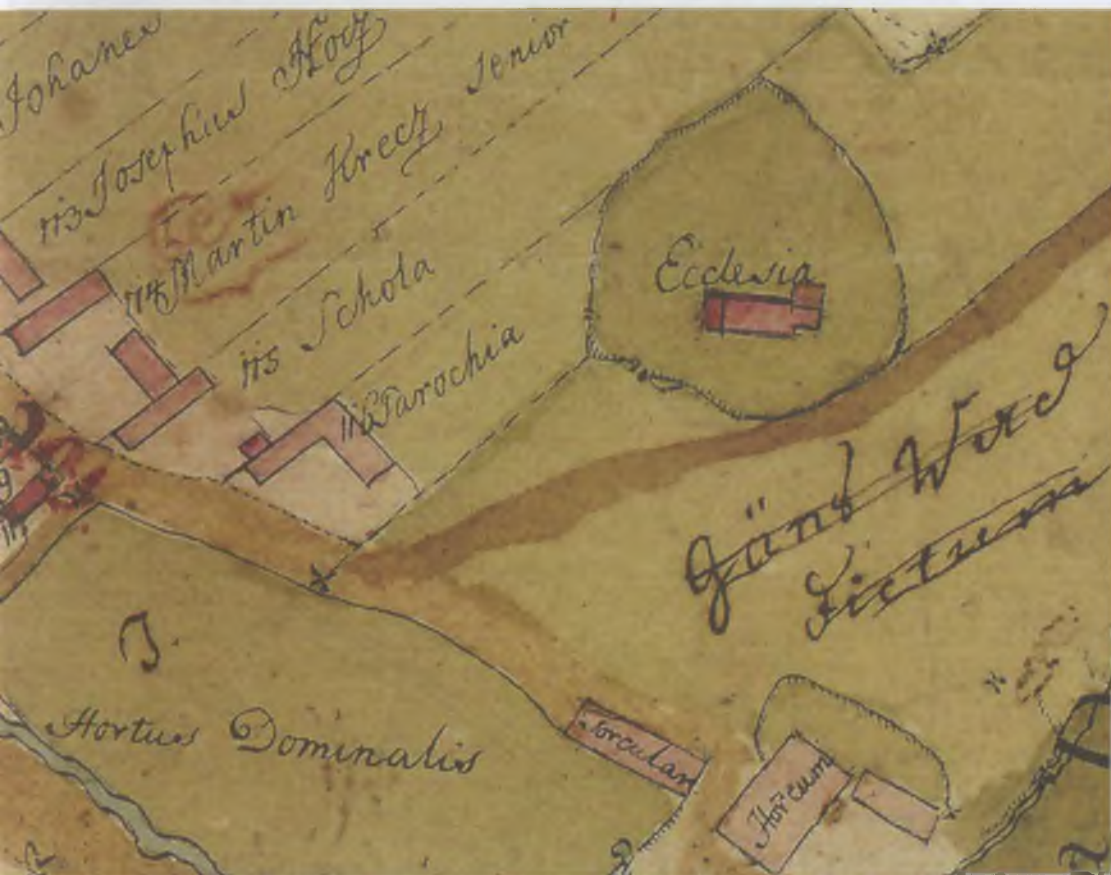 Johanes
113 Josephus Hocz
114 Martin Krecz senior
115 Schola
116 Parochia
Ecclesia
Gänß Werd
Fictum
J.
Hortus Dominalis
Torcular
Horeum